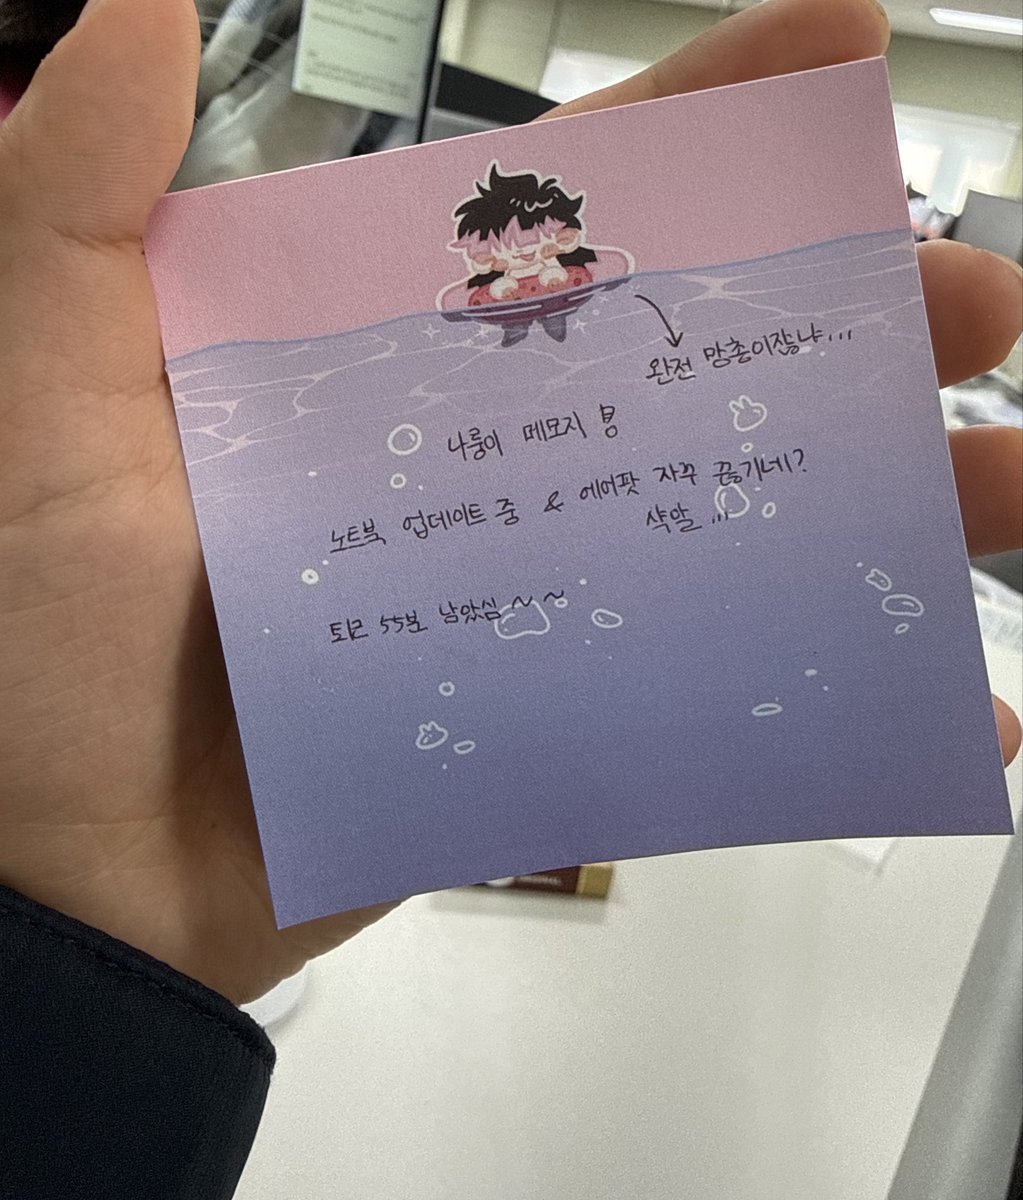 완전 망충이잖냐...
나룽이 메모지 !
노트북 업데이트 중 & 에어팟 자꾸 끊기네?
샥말...
퇴근 55분 남았심~~